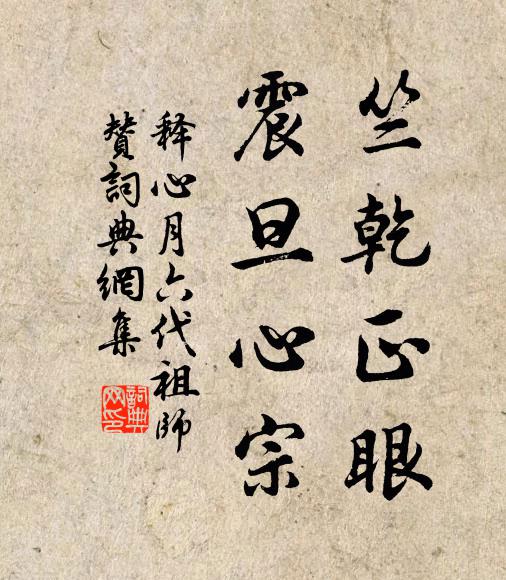 竺乾正眼
震旦心宗
释心月六代祖師
贊詞典網集
詞典
网印